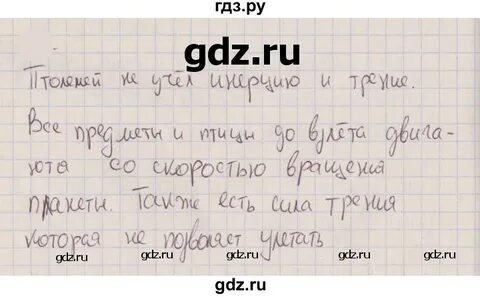 гдз.ру
gdz.ru
Птолемей не учёл инерцию и трение.
Все предметы и птицы до взлёта двига-
ются со скоростью вращения
планеты. Также есть сила трения
которая не позволяет улетать
www.gdz.ru www.gdz.ru www.gdz.ru www.gdz.ru